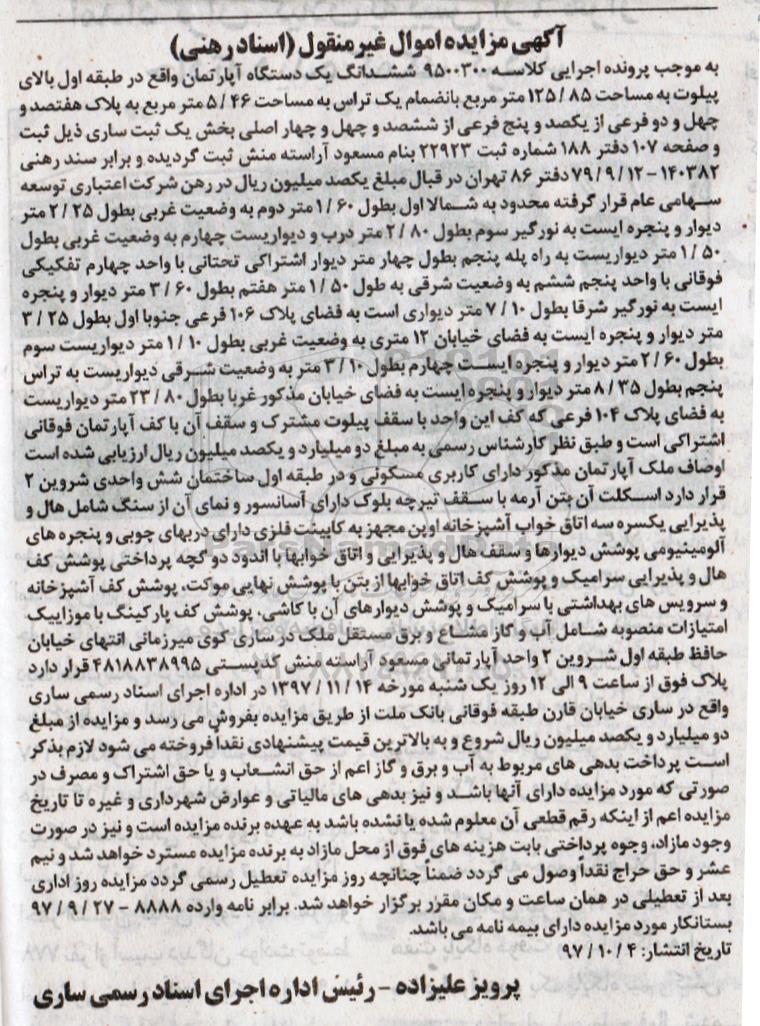 آگهی مزایده اموال غیرمنقول (اسناد رهنی)
به موجب پرونده اجرایی کلاسه ۹۵۰۰۳۰۰ ششدانگ یک دستگاه آپارتمان واقع در طبقه اول بالای
پیلوت به مساحت ۱۲۵/۸۵ متر مربع بانضمام یک تراس به مساحت ۵/۴۶ متر مربع به پلاک هفتصد و
چهل و دو فرعی از یکصد و پنج فرعی از ششصد و چهل و چهار اصلی بخش یک ثبت ساری ذیل ثبت
و صفحه ۱۰۷ دفتر ۱۸۸ شماره ثبت ۲۲۹۲۳ بنام مسعود آراسته منش ثبت گردیده و برابر سند رهنی
۱۴۰۳۸۲ – ۷۹/۹/۱۲ دفتر ۸۶ تهران در قبال مبلغ یکصد میلیون ریال در رهن شرکت اعتباری توسعه
سهامی عام قرار گرفته محدود به شمالا اول بطول ۱/۶۰ متر دوم به وضعیت غربی بطول ۲/۲۵ متر
دیوار و پنجره ایست به نورگیر سوم بطول ۲/۸۰ متر درب و دیواریست چهارم به وضعیت غربی بطول
۱/۵۰ متر دیواریست به راه پله پنجم بطول چهار متر دیوار اشتراکی تحتانی با واحد چهارم تفکیکی
فوقانی با واحد پنجم ششم به وضعیت شرقی به طول ۱/۵۰ متر هفتم بطول ۳/۶۰ متر دیوار و پنجره
ایست به نورگیر شرقا بطول ۷/۱۰ متر دیواری است به فضای پلاک ۱۰۶ فرعی جنوبا اول بطول ۳/۲۵
متر دیوار و پنجره ایست به فضای خیابان ۱۲ متری به وضعیت غربی بطول ۱/۱۰ متر دیواریست سوم
بطول ۲/۶۰ متر دیوار و پنجره ایست چهارم بطول ۳/۱۰ متر به وضعیت شرقی دیواریست به تراس
پنجم بطول ۸/۳۵ متر دیوار و پنجره ایست به فضای خیابان مذکور غربا بطول ۲۳/۸۰ متر دیواریست
به فضای پلاک ۱۰۴ فرعی که کف این واحد با سقف پیلوت مشترک و سقف آن با کف آپارتمان فوقانی
اشتراکی است و طبق نظر کارشناس رسمی به مبلغ دو میلیارد و یکصد میلیون ریال ارزیابی شده است
اوصاف ملک آپارتمان مذکور دارای کاربری مسکونی و در طبقه اول ساختمان شش واحدی شروین ۲
قرار دارد اسکلت آن بتن آرمه با سقف تیرچه بلوک دارای آسانسور و نمای آن از سنگ شامل هال و
پذیرایی یکسره سه اتاق خواب آشپزخانه اوپن مجهز به کابینت فلزی دارای دربهای چوبی و پنجره های
آلومینیومی پوشش دیوارها و سقف هال و پذیرایی و اتاق خوابها با اندود دو گچه پرداختی پوشش کف
هال و پذیرایی سرامیک و پوشش کف اتاق خوابها از بتن با پوشش نهایی موکت، پوشش کف آشپزخانه
و سرویس های بهداشتی با سرامیک و پوشش دیوارهای آن با کاشی، پوشش کف پارکینگ با موزاییک
امتیازات منصوبه شامل آب و گاز مشاع و برق مستقل ملک در ساری کوی میرزمانی انتهای خیابان
حافظ طبقه اول شروین ۲ واحد آپارتمانی مسعود آراسته منش کدپستی ۴۸۱۸۸۳۸۹۹۵ قرار دارد
پلاک فوق از ساعت ۹ الی ۱۲ روز یک شنبه مورخه ۱۳۹۷/۱۱/۱۴ در اداره اجرای اسناد رسمی ساری
واقع در ساری خیابان قارن طبقه فوقانی بانک ملت از طریق مزایده بفروش می رسد و مزایده از مبلغ
دو میلیارد و یکصد میلیون ریال شروع و به بالاترین قیمت پیشنهادی نقداً فروخته می شود لازم بذکر
است پرداخت بدهی های مربوط به آب و برق و گاز اعم از حق انشعاب و یا حق اشتراک و مصرف در
صورتی که مورد مزایده دارای آنها باشد و نیز بدهی های مالیاتی و عوارض شهرداری و غیره تا تاریخ
مزایده اعم از اینکه رقم قطعی آن معلوم شده یا نشده باشد به عهده برنده مزایده است و نیز در صورت
وجود مازاد، وجوه پرداختی بابت هزینه های فوق از محل مازاد به برنده مزایده مسترد خواهد شد و نیم
عشر و حق حراج نقداً وصول می گردد ضمناً چنانچه روز مزایده تعطیل رسمی گردد مزایده روز اداری
بعد از تعطیلی در همان ساعت و مکان مقرر برگزار خواهد شد. برابر نامه وارده ۸۸۸۸ – ۹۷/۹/۲۷
بستانکار مورد مزایده دارای بیمه نامه می باشد.
تاریخ انتشار: ۹۷/۱۰/۴
پرویز علیزاده – رئیس اداره اجرای اسناد رسمی ساری